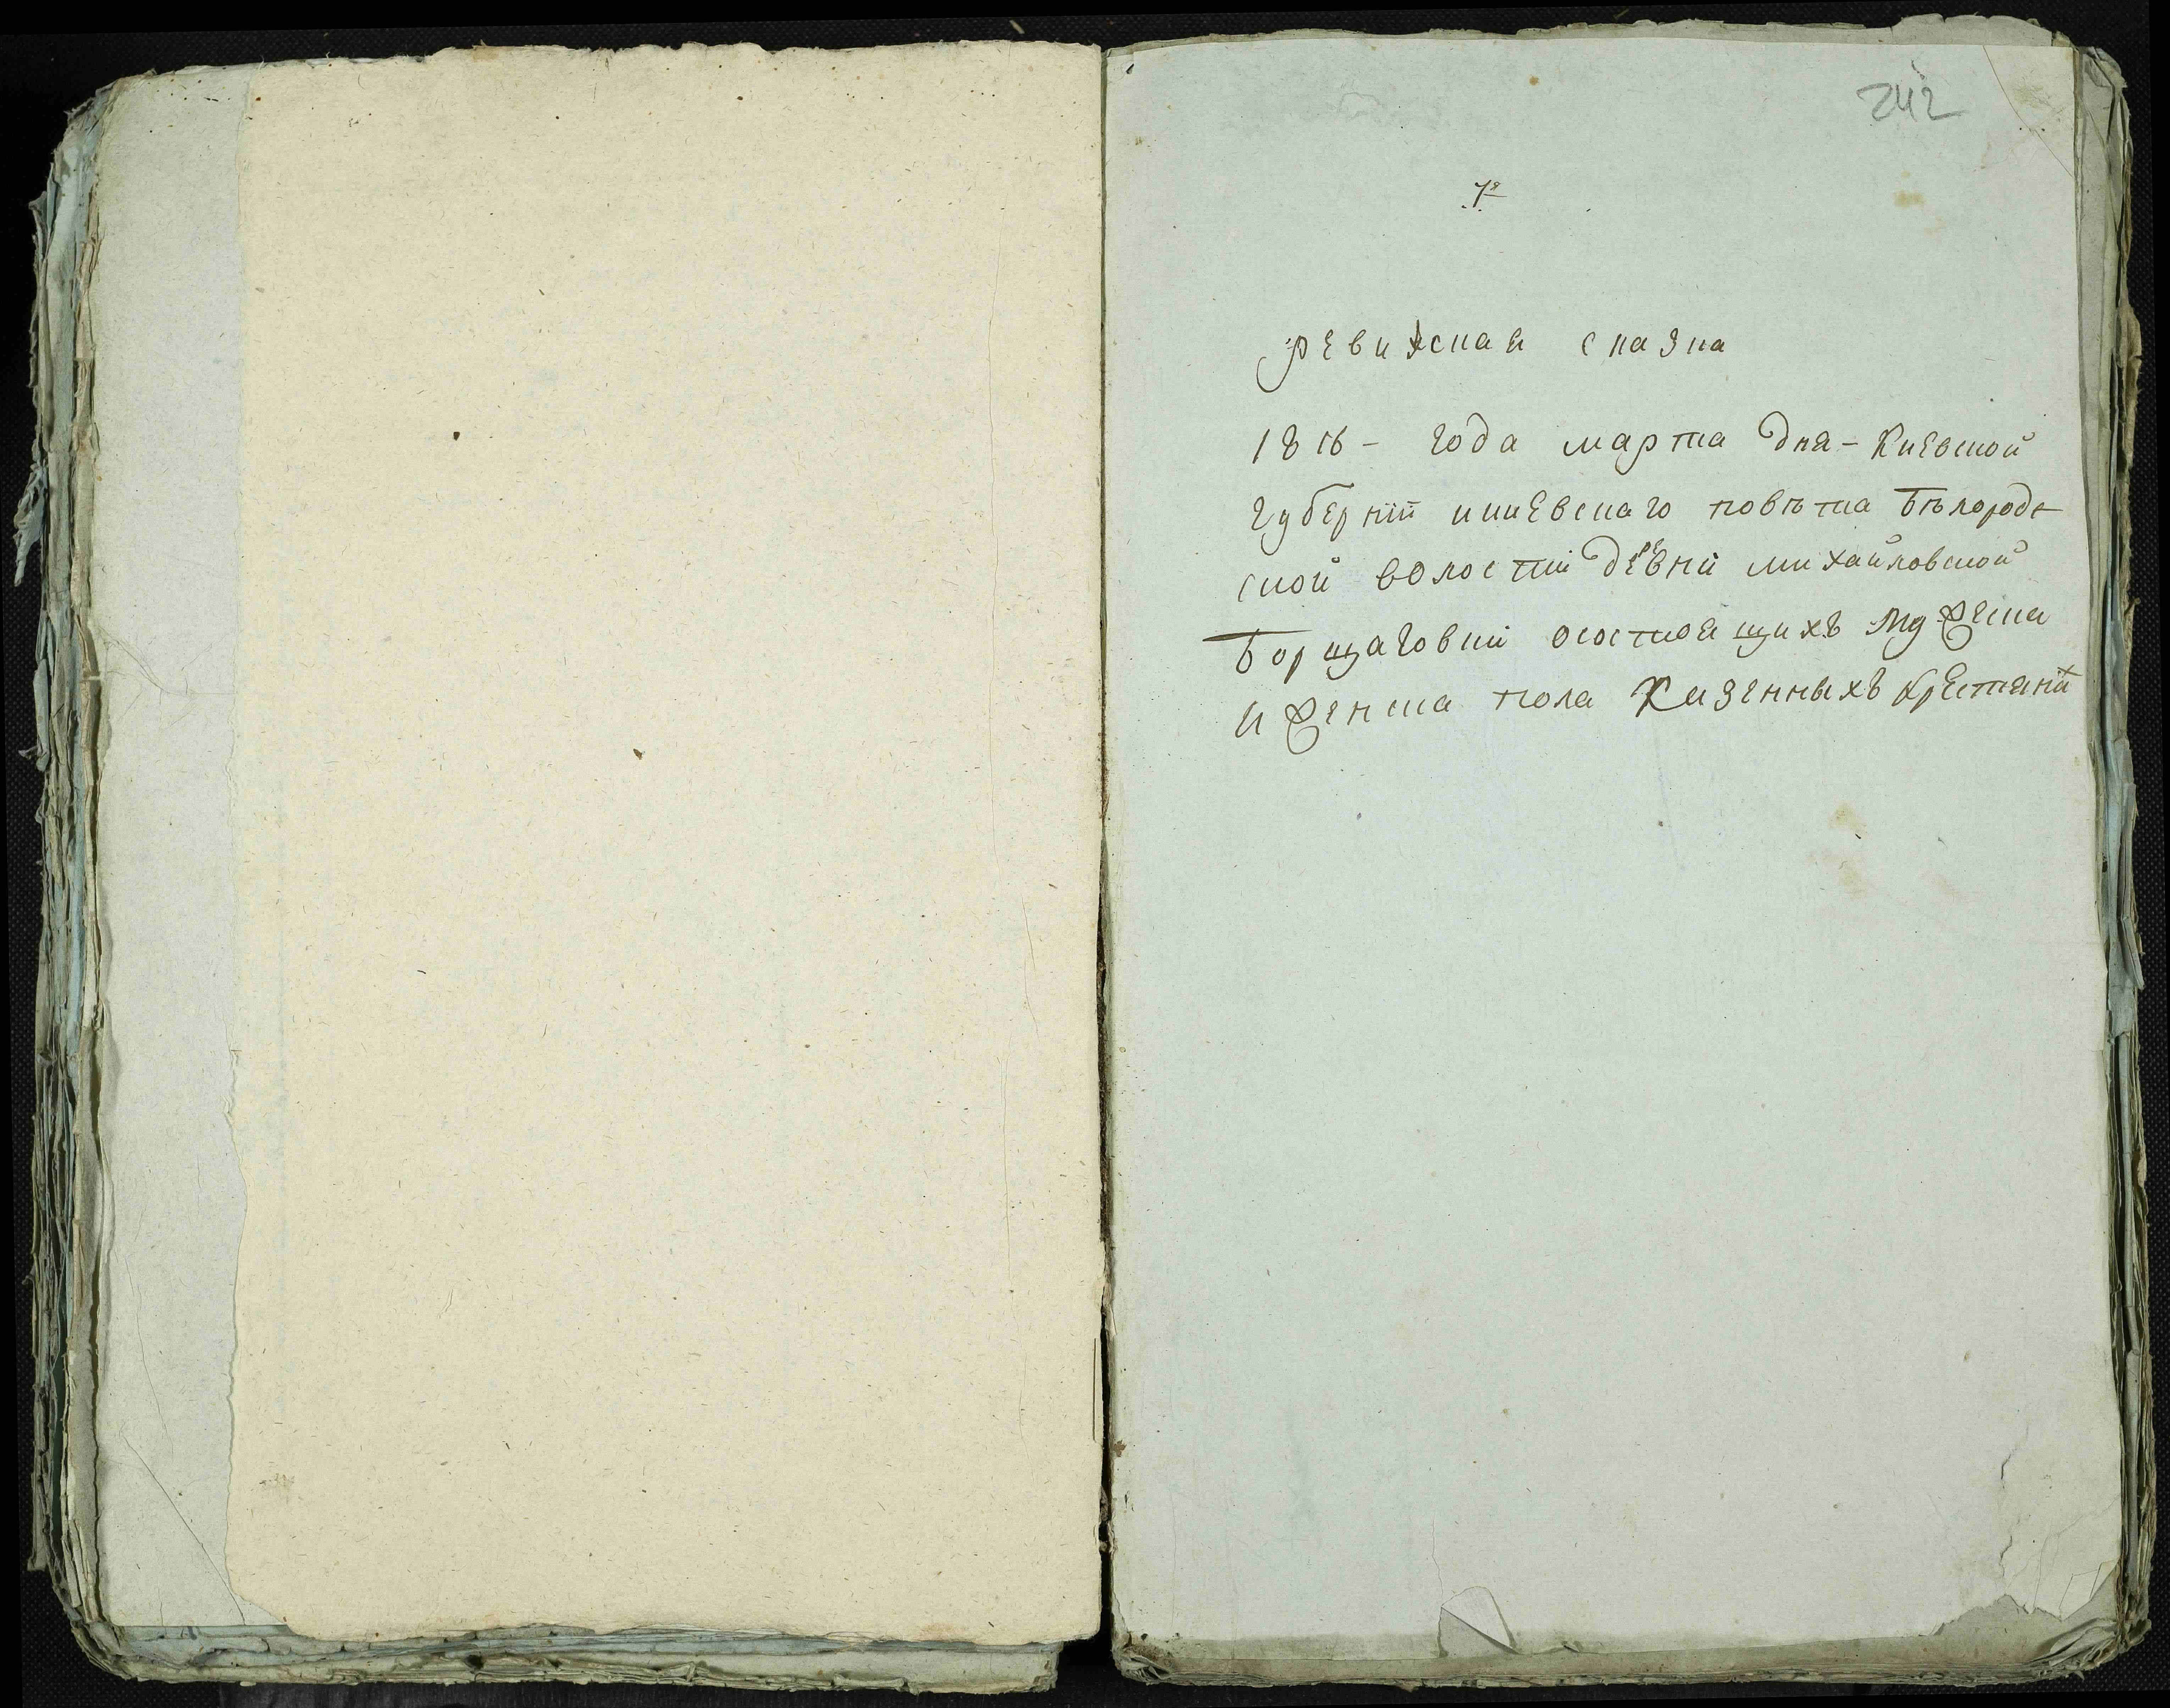 242
7я
ревижская сказка
1816 - года марта дня - Киевской
губернїи киевскаго повѣта Бѣлород
ской волости деревни михайловской
Борщаговки осостоящихъ мужеска
и женска пола Казенныхъ крестянах